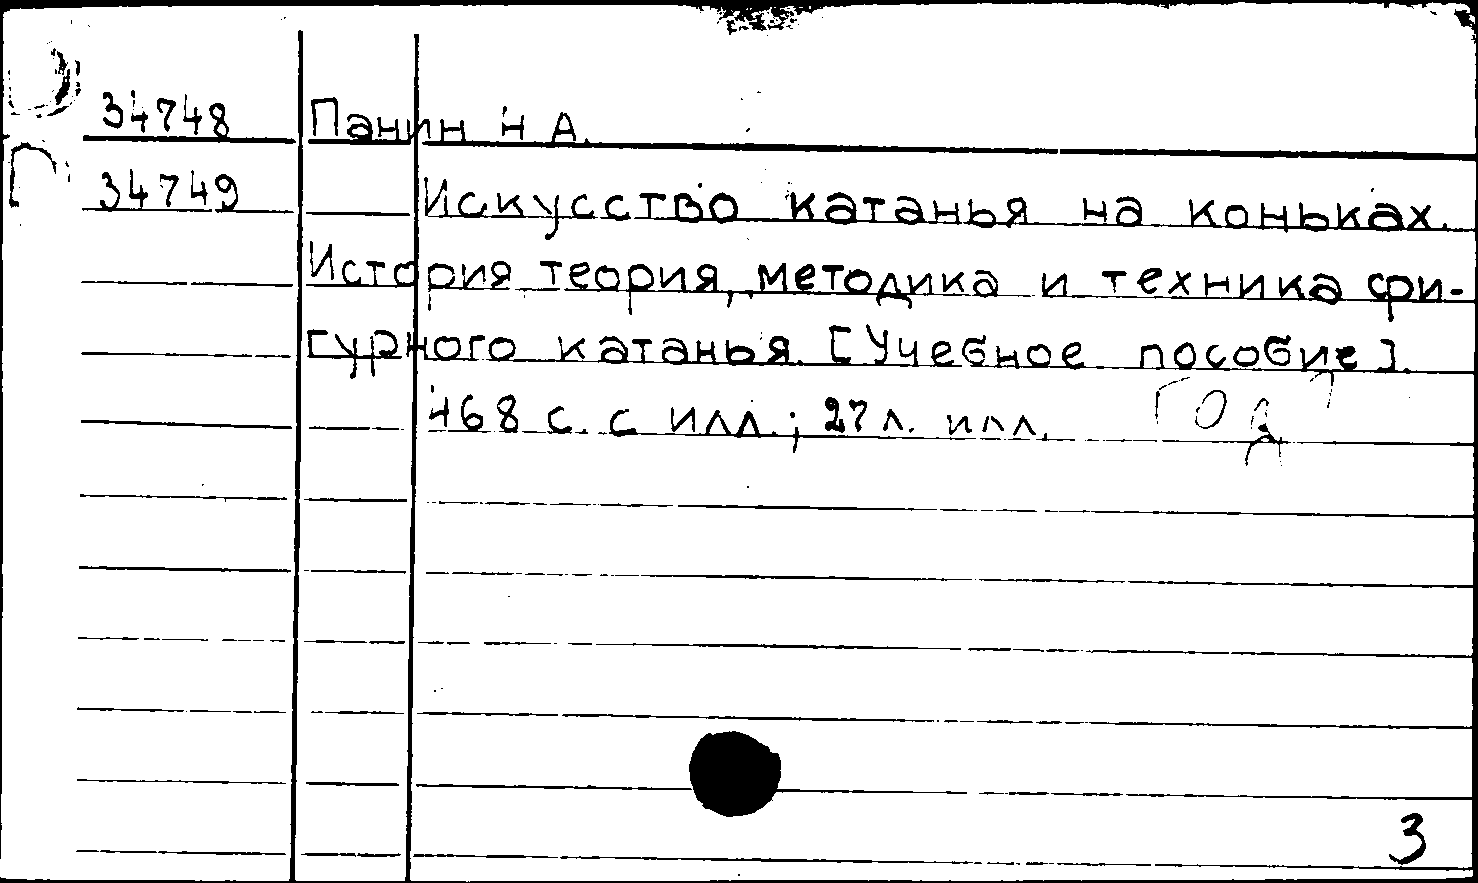 34748 Панин Н А.
34749 Искусство катанья на коньках.
История теория, методика и техника фи-
гурного катанья. [Учебное пособие].
468 с. с илл.; 27 л. илл. год
3